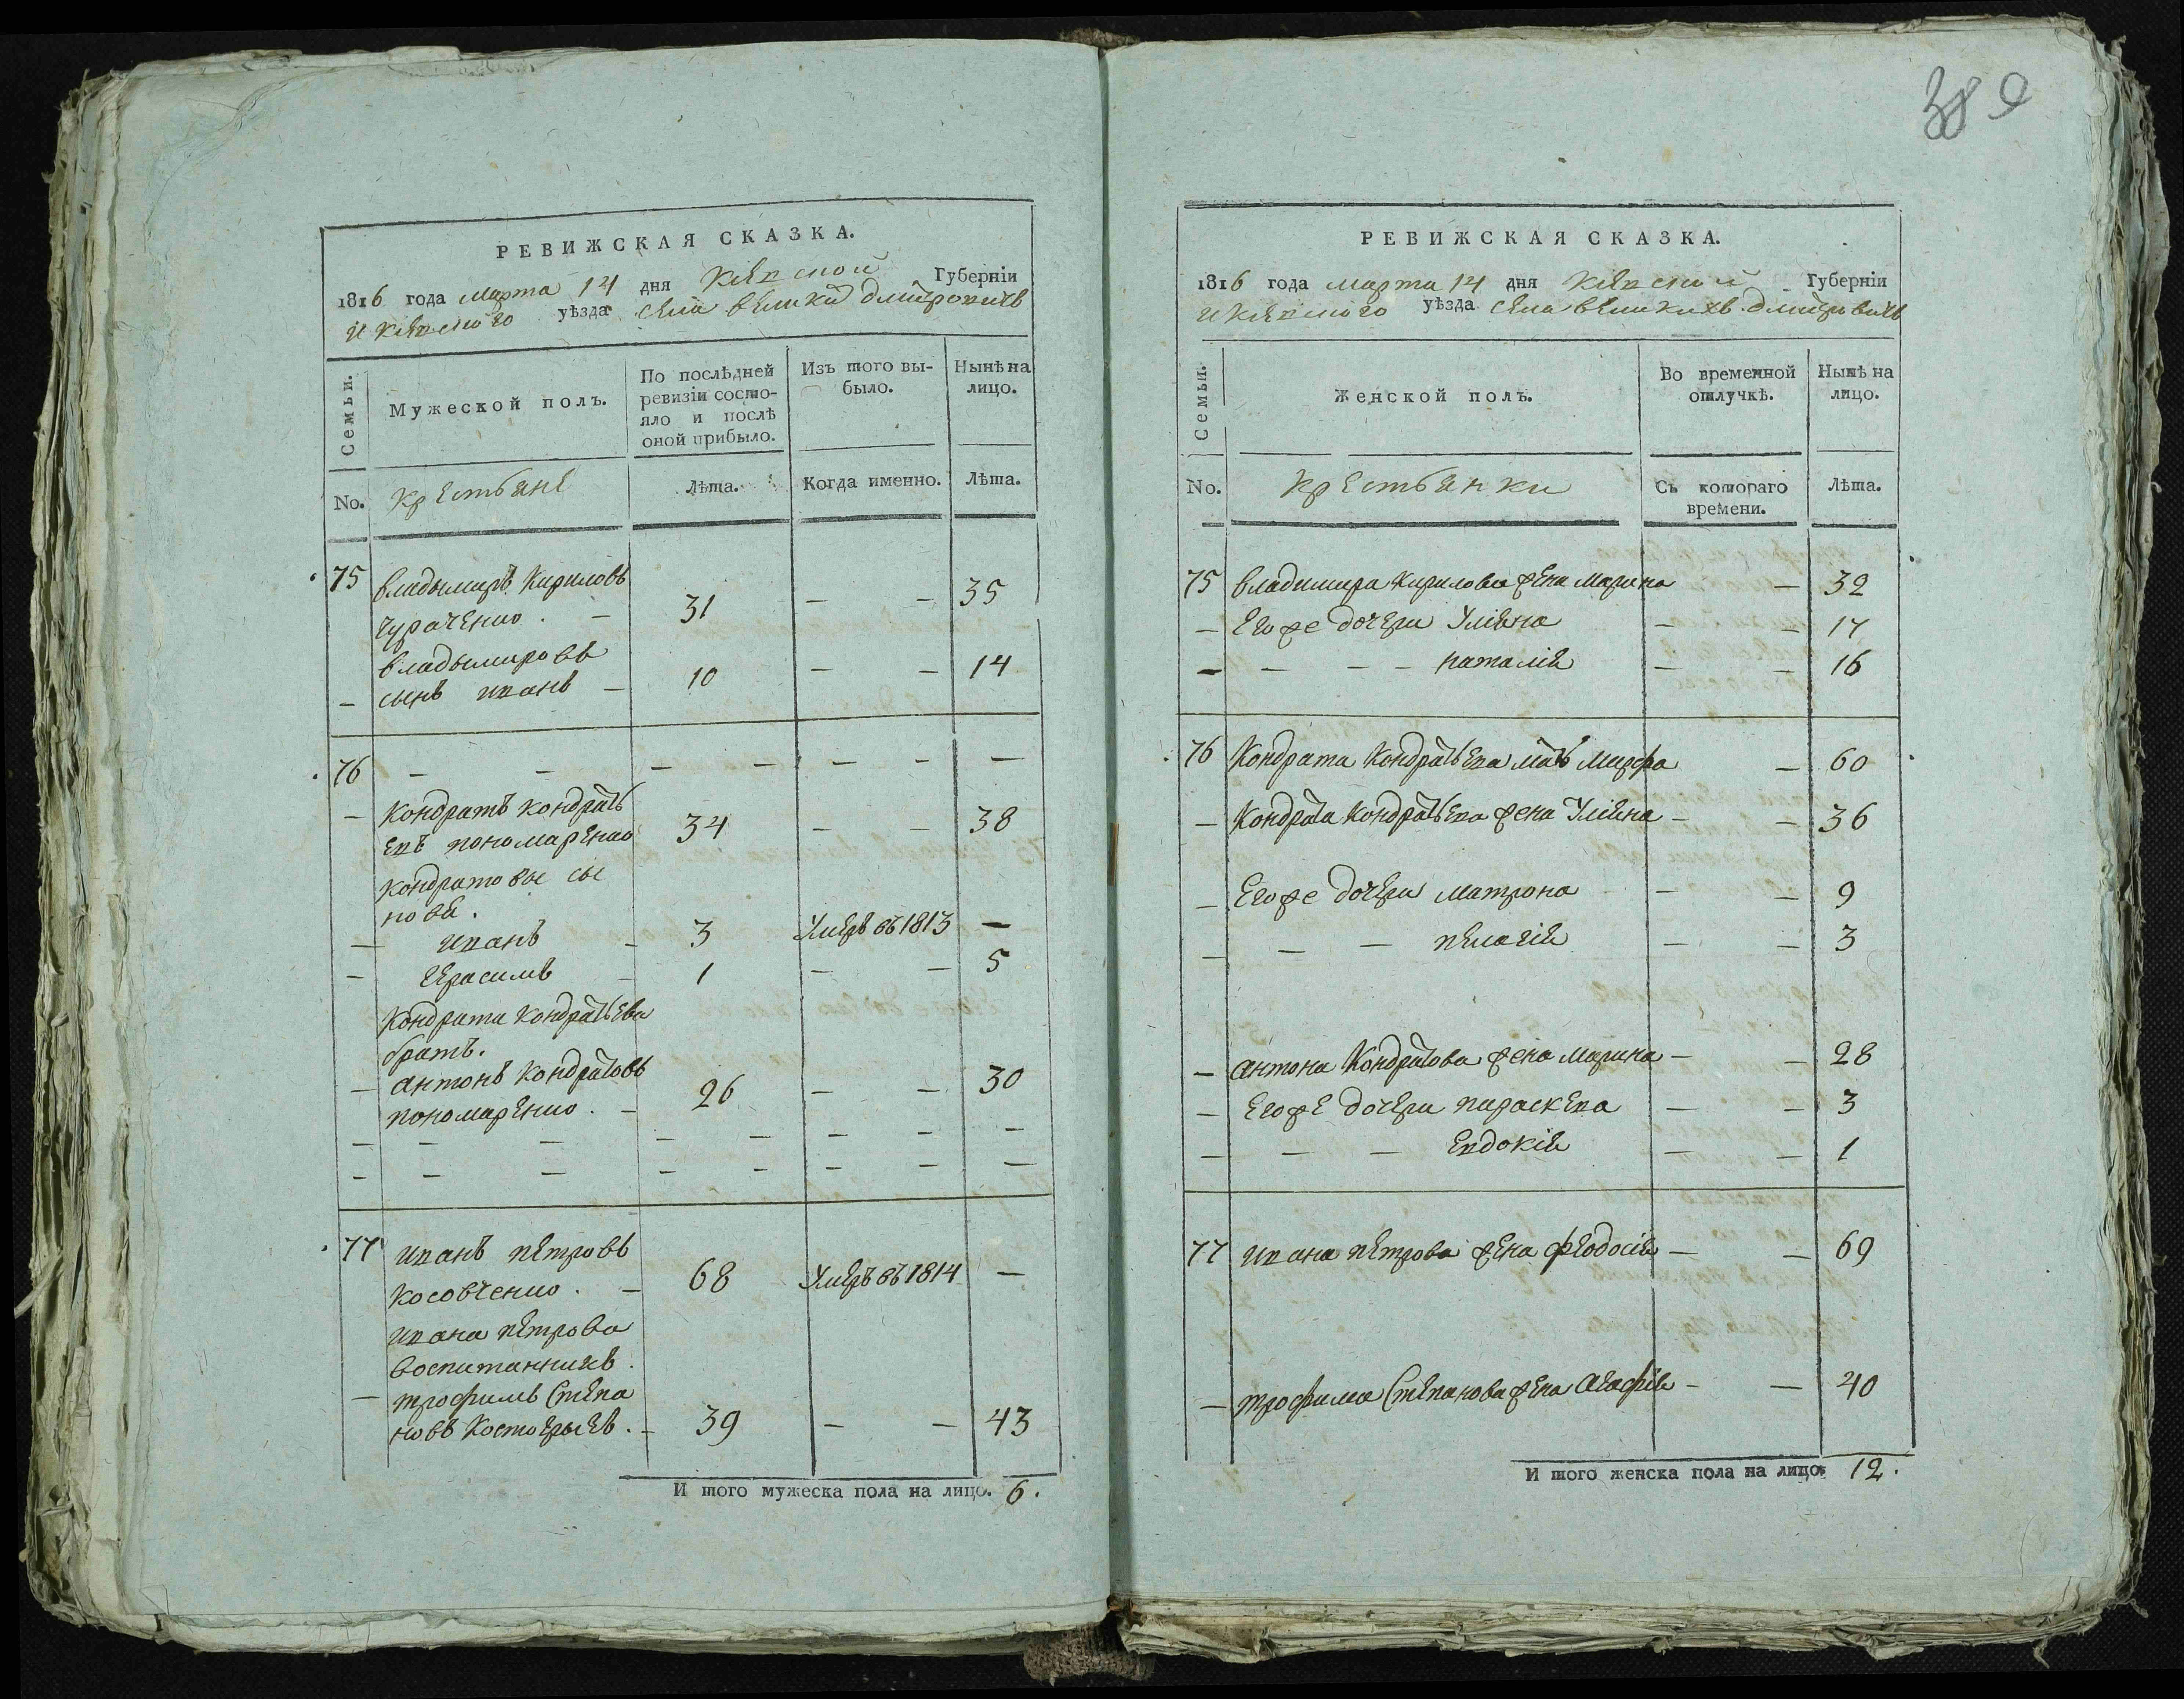 РЕВИЖСКАЯ СКАЗКА.
1816 года марта 14 дня Киевской Губерніи
и киевского уѣзда села великихъ дмитровичъ
Семьи.
Мужеской полъ.
По послѣдней ревизіи состо-
яло и послѣ
оной прибыло.
Изъ того вы-
было.
Нынѣ на
лицо.
No.
крестьяне
Лѣта.
Когда именно.
Лѣта.
75 владымиръ Кириловъ
31 — — 35
владымировъ
— сынъ иванъ — 10 — — 14
76 — — — — — — —
— кондратъ кондратъ
евъ пономаренко 34 — — 38
кондратовы сы
новя.
— иванъ — 3 Умеръ въ 1813 —
— герасимъ — 1 — — 5
Кондрата кондратьева
братъ.
— антонъ кондратовъ
пономаренко. — 26 — — 30
— — — — — — — —
— — — — — — — —
77 иванъ петровъ
косовченко. — 68 Умеръ въ 1814 —
ивана петрова
воспитанникъ.
— трофимъ Степа
новъ 39 — — 43
И того мужеска пола на лицо. 6.
РЕВИЖСКАЯ СКАЗКА.
1816 года марта 14 дня Киевской Губерніи
и киевского уѣзда села великихъ дмитровичъ
Семьи.
Женской полъ.
Во временной
отлучкѣ.
Нынѣ на
лицо.
No.
крестьянки
Съ котораго
времени.
Лѣта.
75 владимира кирилова жена марина — 32
— Его же дочери Уліяна — — 17
— — — — наталія — — 16
76 Кондрата кондратьева мать марфа — 60
— Кондрата кондратьева жена Уліяна — — 36
— Его же дочери матрона — — 9
— — — пелагія — — 3
— антона Кондратова жена марина — — 28
— Его же дочери параскева — — 3
— — — евдокія — — 1
77 ивана петрова жена феодосія — — 69
— трофима Степанова жена агафія — — 40
И того женска пола на лицо. 12.